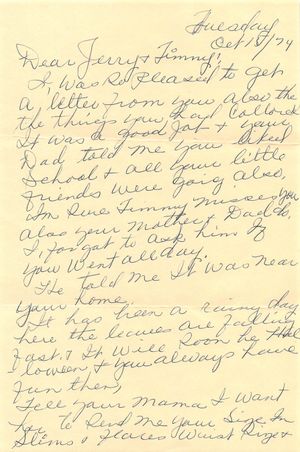 Tuesday
Oct 15/74
Dear Jerry & Timmy!
I, was so pleased to get
a letter from you also the
the things you had Collored
It was a good Job & your
Dad, told me you liked
School & all your little
friends were goig also,
Im Sure Timmy misses you
alos your Mother & Dad do,
I, forgot to ask him if
you Went all day.
He told me It was near
your home.
It has been a rainy day
here the leaves are falling
fast. & It Will Soon be Hal
loween, & you always have
fun then,
Tell your Mama I Want
her to Send me your Size In
Slims & Waist Size &